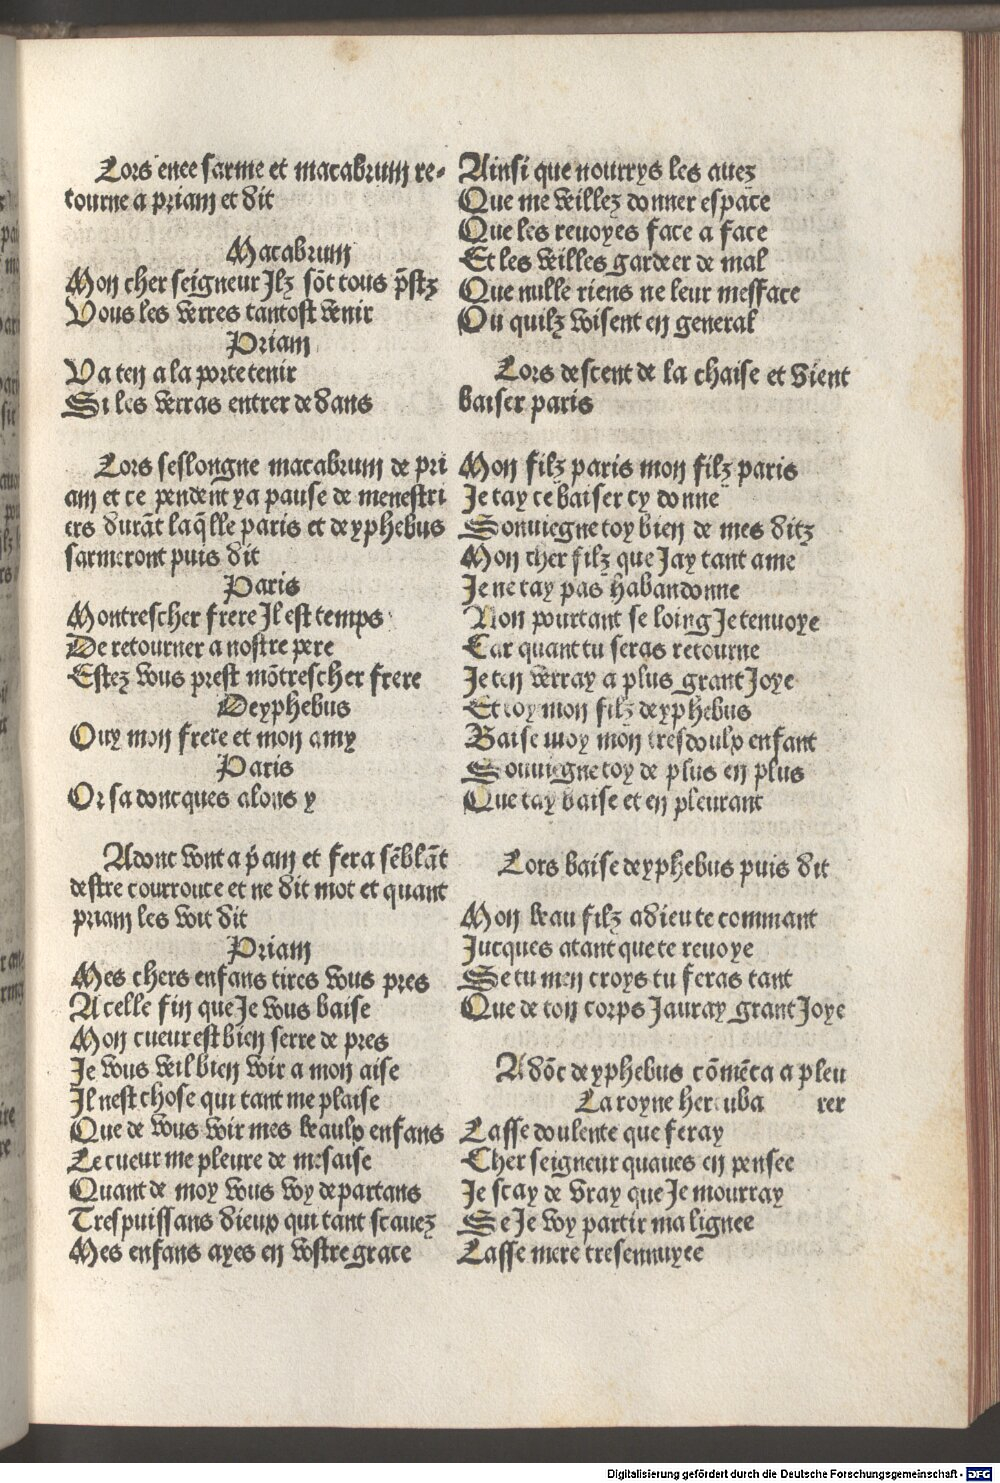 Lors enee sarme et macabrum re-
tourne a priam et dit
Macabrum
Mon cher seigneur Jlz sõt tous p̃stz
Vous les verres tantost venir
Priam
Va ten a la porte tenir
Si les verras entrer de dans
Lors seslongne macabrum de pri
am et ce pendent y a pause de menestri
ers durãt laq̃lle paris et deyphebus
sarmeront puis dit
Paris
Montrescher frere Jl est temps
De retourner a nostre pere
Estez vous prest mõtrescher frere
Deyphebus
Ouy mon frere et mon amy
Paris
Or sa doncques alons y
Adonc vont a p̃am et fera sẽblãt
destre courrouce et ne dit mot et quant
priam les voit dit
Priam
Mes chers enfans tires vous pres
A celle fin que Je vous baise
Mon cueur est bien serre de pres
Je vous veil bien voir a mon aise
Il nest chose qui tant me plaise
Que de vous voir mes beaulx enfans
Le cueur me pleure de mesaise
Quant de moy vous voy departans
Trespuissans dieux qui tant scauez
Mes enfans ayes en vostre grace
Ainsi que nourrys les auez
Que me veillez donner espace
Que les reuoyes face a face
Et les veilles gardeer de mal
Que nulle riens ne leur mefface
Ou quilz voisent en general
Lors descent de la chaise et vient
baiser paris
Mon filz paris mon filz paris
Je tay ce baiser cy donne
Sonuiegne toy bien de mes ditz
Mon cher filz que Jay tant ame
Je ne tay pas habandonne
Non pourtant se loing Je tenuoye
Car quant tu seras retourne
Je ten verray a plus grant Joye
Et toy mon filz deyphebus
Baise moy mon tresdoulx enfant
Souuiegne toy de plus en plus
Que tay baise et en pleurant
Lors baise deyphebus puis dit
Mon beau filz adieu te commant
Jucques atant que te reuoye
Se tu men croys tu feras tant
Que de ton corps Jauray grant Joye
Adõc deyphebus cõmẽca a pleu
La royne hercuba rer
Lasse doulente que feray
Cher seigneur quaues en pensee
Je scay de vray que Je mourray
Se Je voy partir ma lignee
Lasse mere tresennuyee
Digitalisierung gefördert durch die Deutsche Forschungsgemeinschaft - DFG